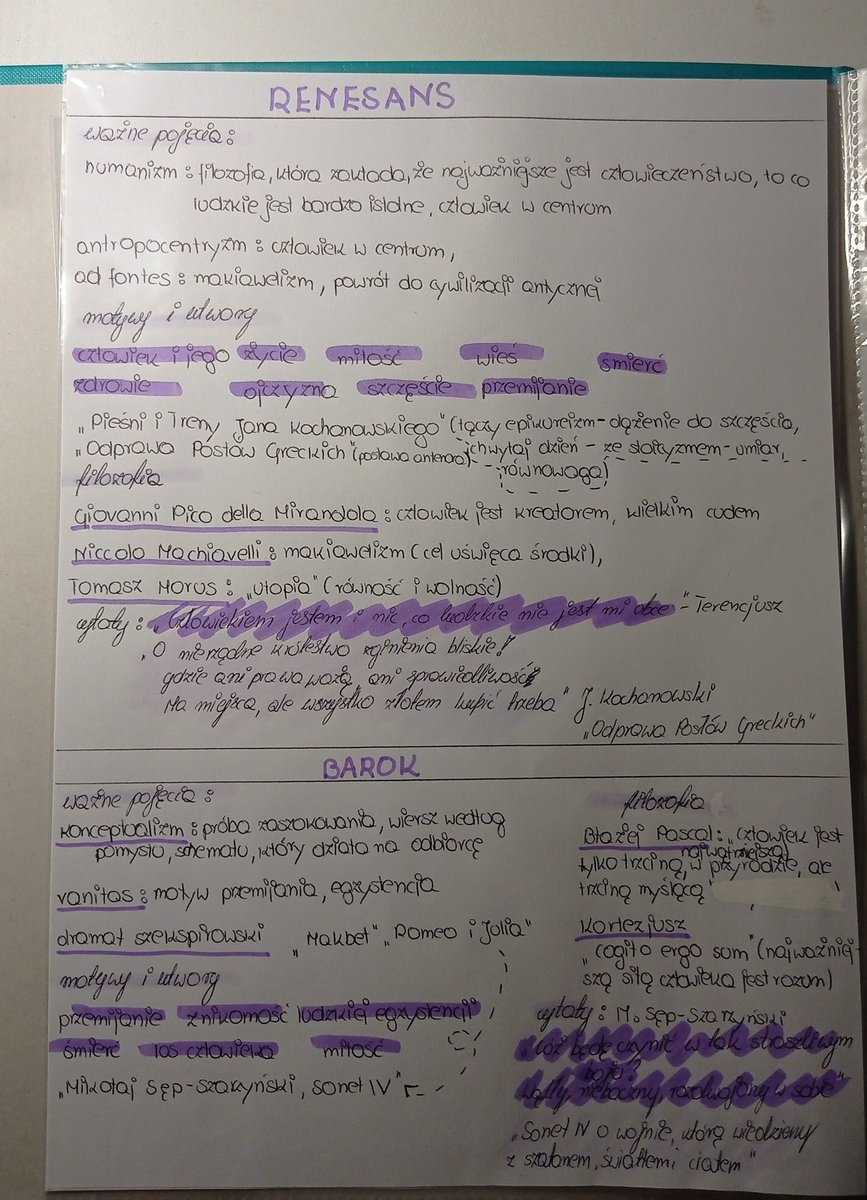 RENESANS
ważne pojęcia:
humanizm: filozofia, która zakłada, że najważniejsze jest człowieczeństwo, to co
ludzkie jest bardzo istotne, człowiek w centrum
antropocentryzm: człowiek w centrum,
ad fontes: makiawelizm, powrót do cywilizacji antycznej
motywy i utwory
człowiek i jego życie miłość wieś śmierć
zdrowie ojczyzna szczęście przemijanie
„Pieśni i Treny Jana Kochanowskiego" (łączy epikureizm - dążenie do szczęścia,
„Odprawa Posłów Greckich" (postawa antenora) chwytaj dzień - ze stoityzmem - umiar,
równowaga)
filozofia
Giovanni Pico della Mirandola: człowiek jest kreatorem, wielkim cudem
Niccolo Machiavelli: makiawelizm (cel uświęca środki),
Tomasz Morus: „Utopia" (równość i wolność)
cytaty: „Człowiekiem jestem i nic, co ludzkie nie jest mi obce" - Terencjusz
„O nierządne królestwo zginienia bliskie!
gdzie ani prawa ważą, ani sprawiedliwość
Ma miejsca, ale wszystko złotem kupić trzeba" J. Kochanowski
„Odprawa Posłów Greckich"
BAROK
ważne pojęcia:
konceptualizm: próba zaszokowania, wiersz według
pomysłu, schematu, który działa na odbiorcę
vanitas: motyw przemijania, egzystencja
dramat szekspirowski „Makbet" „Romeo i Julia"
motywy i utwory
przemijanie znikomość ludzkiej egzystencji
śmierć los człowieka miłość
„Mikołaj Sęp-Szarzyński, sonet IV"
filozofia
Błażej Pascal: „Człowiek jest
tylko trzciną, najważniejszą w przyrodzie, ale
trzciną myślącą"
Kartezjusz
„cogito ergo sum" (najważniej-
szą siłą człowieka jest rozum)
cytaty: M. Sęp-Szarzyński
„Cóż będę czynić w tak straszliwym
boju?
Wątły, niebaczny, rozdwojony w sobie"
„Sonet IV o wojnie, którą wiedziemy
z szatanem, światłem i ciałem"